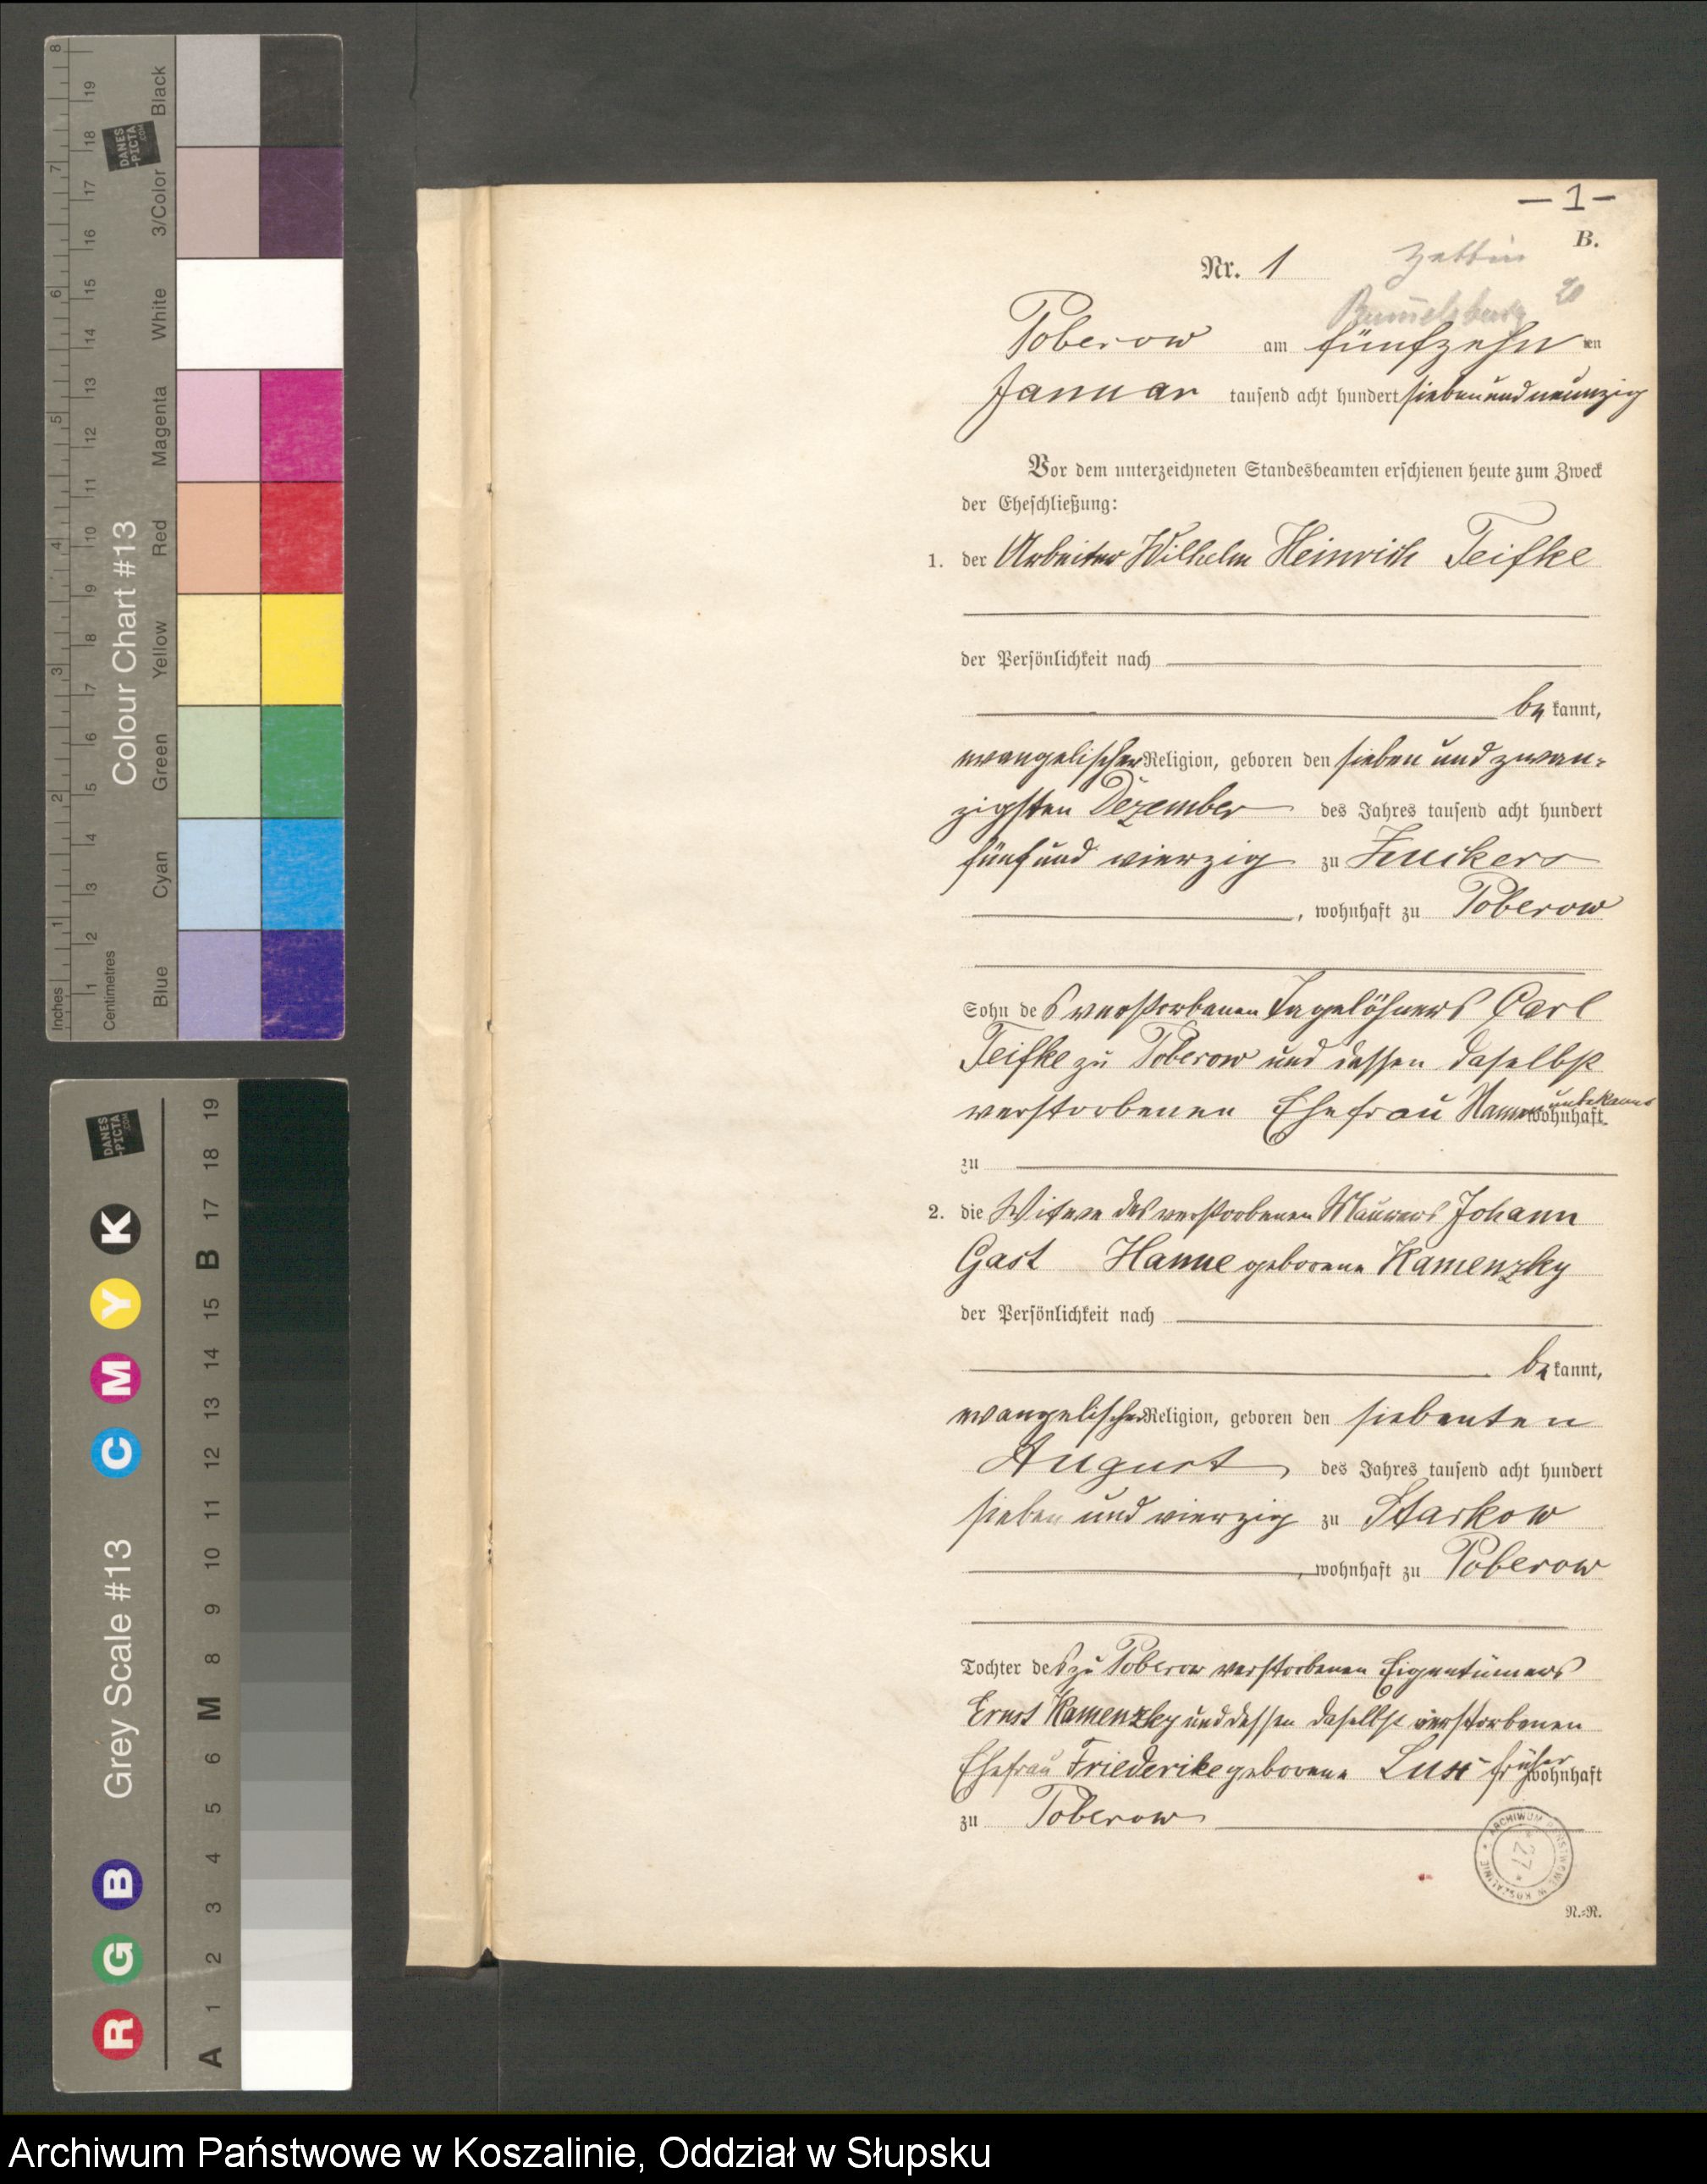 Inches 1 2 3 4 5 6 7 8
Centimetres 1 2 3 4 5 6 7 8 9 10 11 12 13 14 15 16 17 18 19
DANES
-PICTA
.COM
Colour Chart #13
Blue Cyan Green Yellow Red Magenta White 3/Color Black
DANES
-PICTA
.COM
Grey Scale #13
R G B C M Y K
A 1 2 3 4 5 6 M 8 9 10 11 12 13 14 15 B 17 18 19
— 1 —
B.
Nr. 1
Zettin
Rummelsburg 20
Poberow am fünfzehn ten
Januar tausend acht hundert sieben und neunzig
Vor dem unterzeichneten Standesbeamten erschienen heute zum Zweck
der Eheschließung:
1. der Arbeiter Wilhelm Heinrich Teifke
der Persönlichkeit nach
be kannt,
evangelischer Religion, geboren den sieben und zwan-
zigsten Dezember des Jahres tausend acht hundert
fünf und vierzig zu Zuckers
, wohnhaft zu Poberow
Sohn des verstorbenen Tagelöhners Carl
Teifke zu Poberow und dessen daselbst
verstorbenen Ehefrau Namen unbekannt wohnhaft
zu
2. die Witwe des verstorbenen Maurers Johann
Gast Hanne geborene Kamenzky
der Persönlichkeit nach
be kannt,
evangelischer Religion, geboren den siebenten
August des Jahres tausend acht hundert
sieben und vierzig zu Starkow
, wohnhaft zu Poberow
Tochter des zu Poberow verstorbenen Eigentümers
Ernst Kamenzky und dessen daselbst verstorbenen
Ehefrau Friederike geborene früher wohnhaft
zu Poberow
ARCHIWUM PAŃSTWOWE W KOSZALINIE
27
N.=N.
Archiwum Państwowe w Koszalinie, Oddział w Słupsku